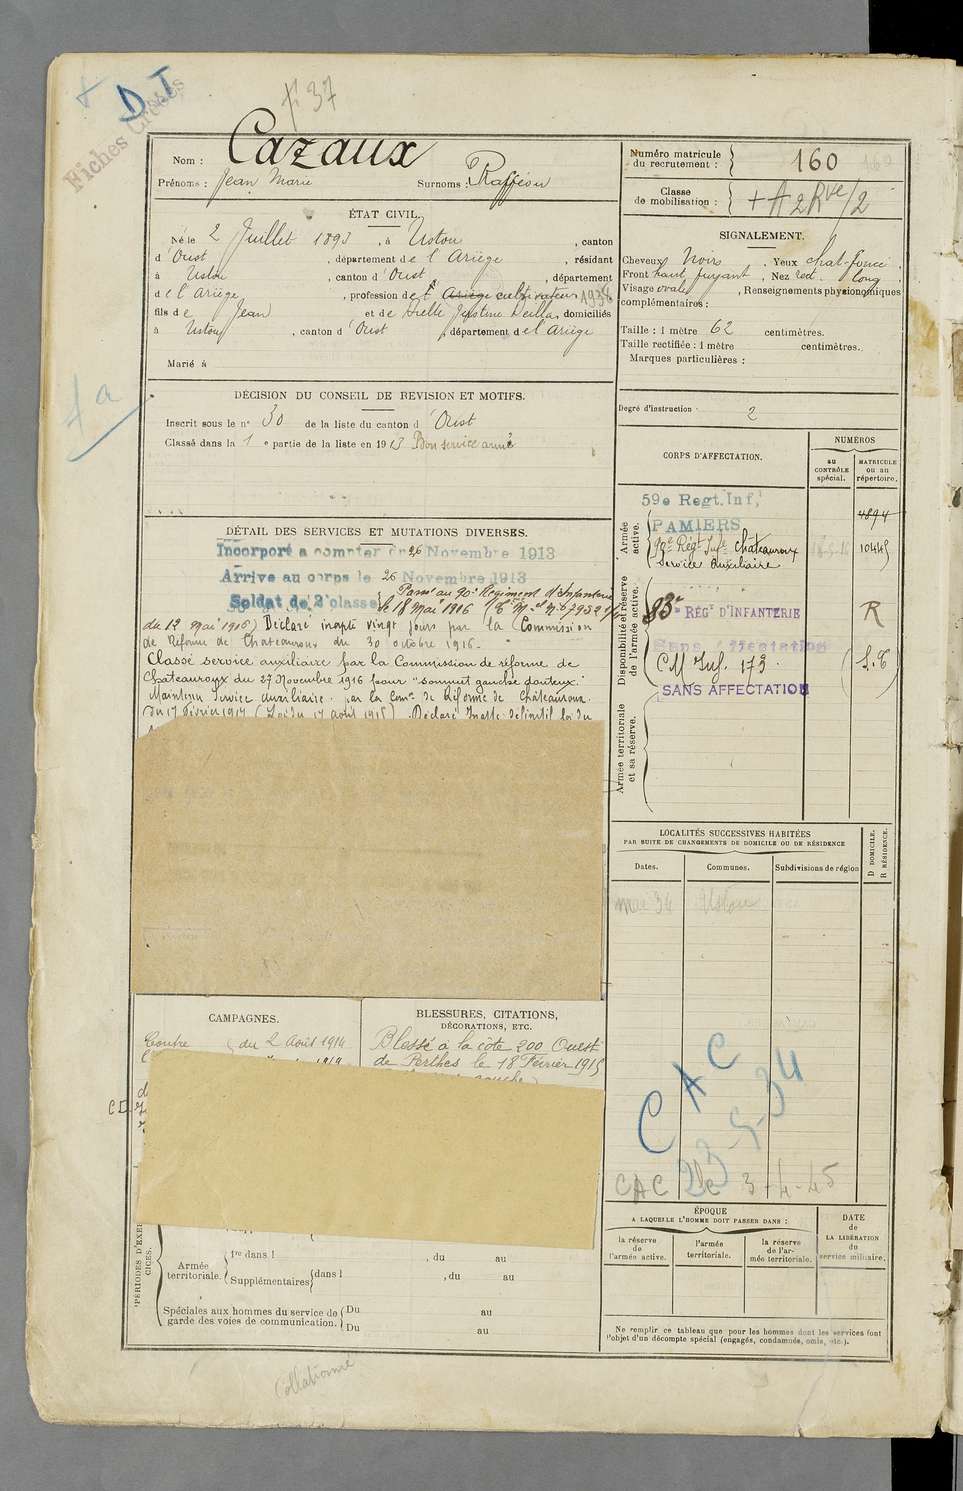 D.T
Fiches Créées
F 37
Nom : Cazaux
Prénoms : Jean Marie Surnoms : Rafféou
Numéro matricule du recrutement : 160
Classe de mobilisation : + A 2 Rve/2
ÉTAT CIVIL.
Né le 2 Juillet 1893, à Ustou, canton
d'Oust, département de l'Ariège, résidant
à Ustou, canton d'Oust, département
de l'Ariège, profession de cultivateur 1938
fils de Jean et de Justine domiciliés
à Ustou, canton d'Oust, département de l'Ariège
Marié à
SIGNALEMENT.
Cheveux Noirs. Yeux chat-foncé.
Front haut fuyant, Nez rect. long
Visage ovale, Renseignements physionomiques
complémentaires :
Taille : 1 mètre 62 centimètres.
Taille rectifiée : 1 mètre centimètres.
Marques particulières :
Degré d'instruction : 2
DÉCISION DU CONSEIL DE REVISION ET MOTIFS.
Inscrit sous le n° 30 de la liste du canton d'Oust
Classé dans la 1e partie de la liste en 1913 Bon service armé
DÉTAIL DES SERVICES ET MUTATIONS DIVERSES.
Incorporé a compter du 26 Novembre 1913
Arrive au corps le 26 Novembre 1913
Soldat de 2e classe
Passé au 90e Régiment d'Infanterie
le 18 Mai 1916
du 12 Mai 1916) Déclaré inapte vingt jours par la Commission
de Réforme de Chateauroux du 30 octobre 1916.
Classé service auxiliaire par la Commission de réforme de
Chateauroux du 27 Novembre 1916 pour "sommet gauche douteux."
Maintenu service auxiliaire par la Comon de Réforme de Châteauroux
du 17 Février 1917 (Loi du 17 août 1915). Déclaré Inapte définitif loi du
CORPS D'AFFECTATION.
NUMÉROS
au CONTRÔLE spécial.
MATRICULE ou au répertoire.
Armée active.
59e Regt. Inf.
PAMIERS
4894
90e Régt Infie Châteauroux
10445
Service Auxiliaire
Disponibilité et réserve de l'armée active.
83e RÉGt D'INFANTERIE
R
Sans Affectation
CM Inf. 173
SANS AFFECTATION
Armée territoriale et sa réserve.
LOCALITÉS SUCCESSIVES HABITÉES
PAR SUITE DE CHANGEMENTS DE DOMICILE OU DE RÉSIDENCE
Dates.
Communes.
Subdivisions de région
D DOMICILE.
R RÉSIDENCE.
mai 34 Ustou
CAC
23-5-34
CAC de 3-4-45
CAMPAGNES.
Contre du 2 Août 1914
BLESSURES, CITATIONS,
DÉCORATIONS, ETC.
Blessé à la côte 200 Ouest
de Perthes le 18 Février 1915
PÉRIODES D'EXERCICES.
Armée territoriale.
1re dans l , du au
Supplémentaires dans l , du au
Spéciales aux hommes du service de garde des voies de communication.
Du au
Du au
ÉPOQUE
A LAQUELLE L'HOMME DOIT PASSER DANS :
la réserve de l'armée active.
l'armée territoriale.
la réserve de l'armée territoriale.
DATE DE LA LIBÉRATION du service militaire.
Ne remplir ce tableau que pour les hommes dont les services font
l'objet d'un décompte spécial (engagés, condamnés, omis, etc.).
Collationné